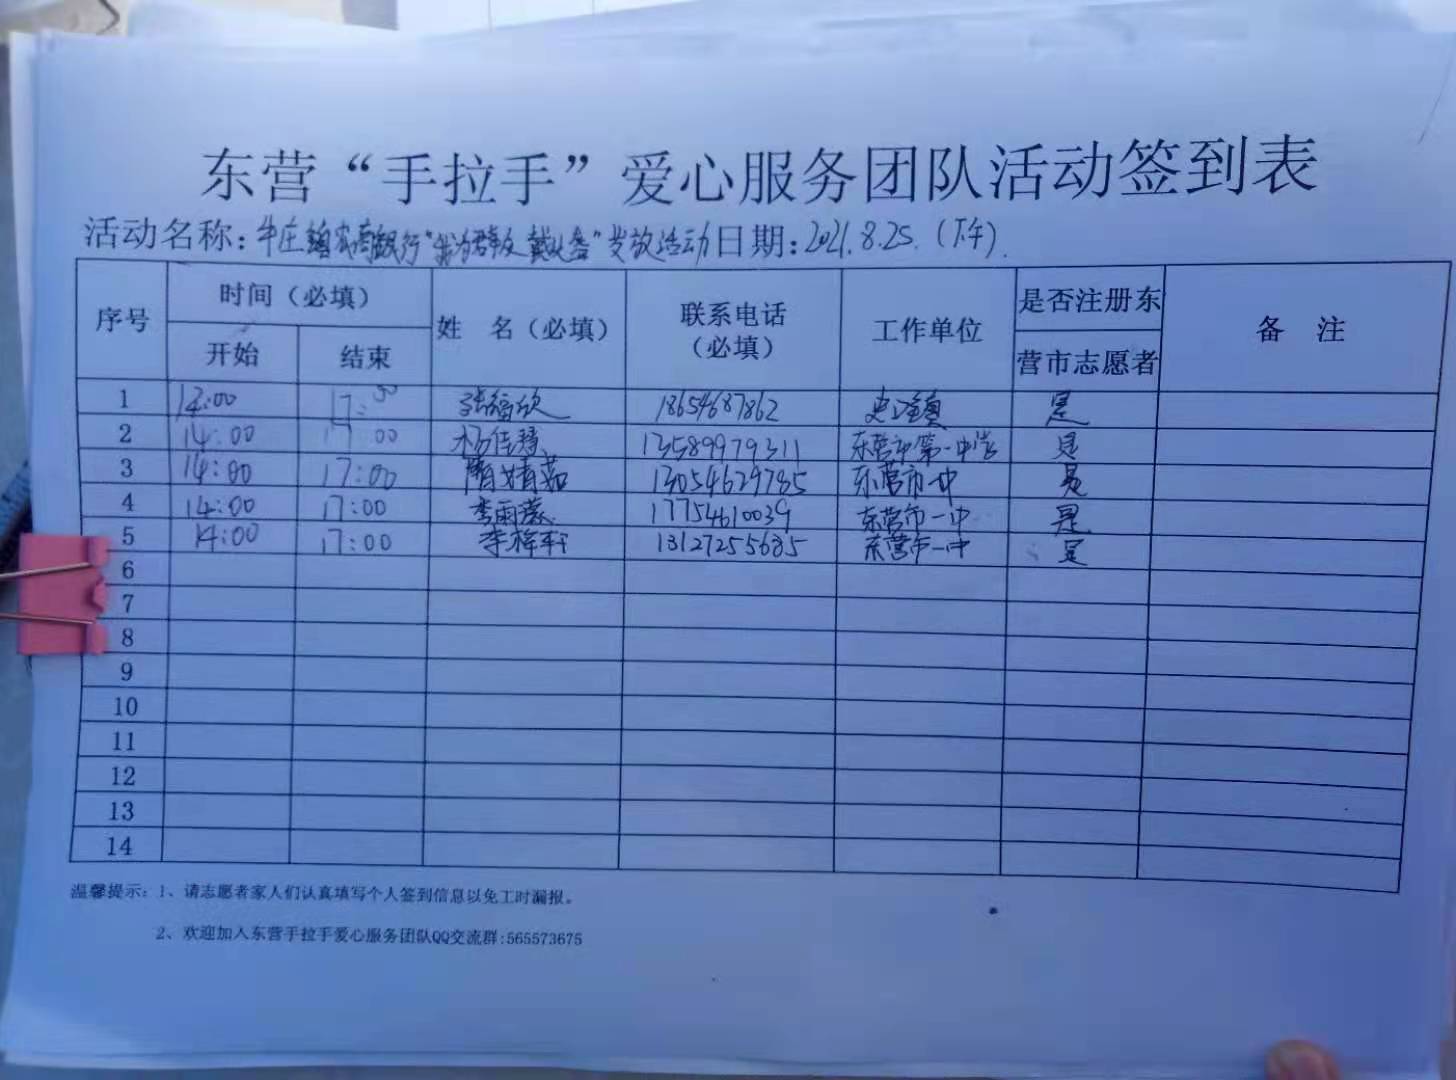 东营“手拉手”爱心服务团队活动签到表
活动名称：牛庄镇农商银行“我为群众戴头盔”发放活动 日期：2021.8.25.（下午）.
序号 时间（必填） 姓 名（必填） 联系电话（必填） 工作单位 是否注册东营市志愿者 备 注
开始 结束
1 17:00 张福欣 18654687862 史口镇 是
2 14:00 17:00 杨佳 13589979311 东营市第一中学 是
3 14:00 17:00 13054629785 东营市一中 是
4 14:00 17:00 李雨 17754610039 东营市一中 是
5 14:00 17:00 李梓轩 13127255685 东营市一中 是
6
7
8
9
10
11
12
13
14
温馨提示：1、请志愿者家人们认真填写个人签到信息以免工时漏报。
2、欢迎加入东营手拉手爱心服务团队QQ交流群:565573675